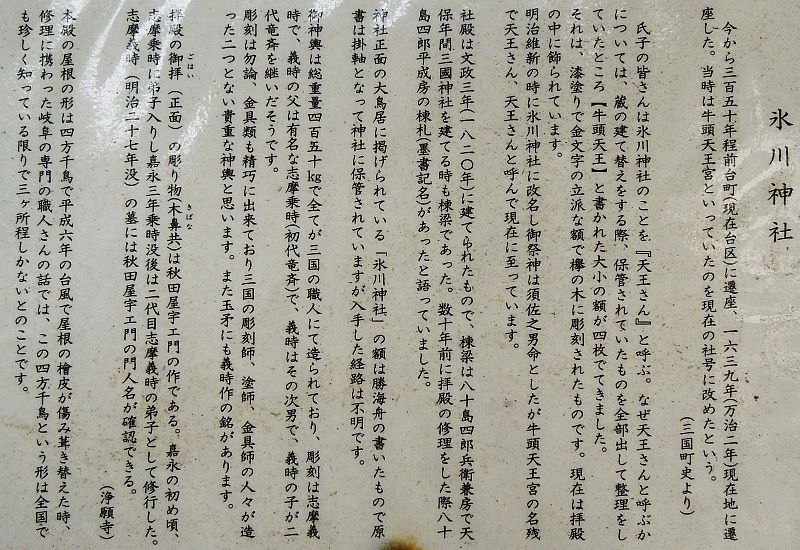 氷川神社
今から三百五十年程前台町(現在台区)に遷座、一六三九年(万治二年)現在地に遷
座した。当時は牛頭天王宮といっていたのを現在の社号に改めたという。
(三国町史より)
氏子の皆さんは氷川神社のことを『天王さん』と呼ぶ。なぜ天王さんと呼ぶか
については、蔵の建て替えをする際、保管されていたものを全部出して整理をし
ていたところ【牛頭天王】と書かれた大小の額が四枚でてきました。
それは、漆塗りで金文字の立派な額で欅の木に彫刻されたものです。現在は拝殿
の中に飾られています。
明治維新の時に氷川神社に改名し御祭神は須佐之男命としたが牛頭天王宮の名残
で天王さん、天王さんと呼んで現在に至っています。
社殿は文政三年(一八二〇年)に建てられたもので、棟梁は八十島四郎兵衛兼房で天
保年間三國神社を建てる時も棟梁であった。数十年前に拝殿の修理をした際八十
島四郎平成房の棟札(墨書記名)があったと語っていました。
神社正面の大鳥居に掲げられている「氷川神社」の額は勝海舟の書いたもので原
書は掛軸となって神社に保管されていますが入手した経路は不明です。
御神輿は総重量四百五十㎏で全てが三国の職人にて造られており、彫刻は志摩義
時で、義時の父は有名な志摩乗時(初代竜斉)で、義時はその次男で、義時の子が二
代竜斉を継いだそうです。
彫刻は勿論、金具類も精巧に出来ており三国の彫刻師、塗師、金具師の人々が造
った二つとない貴重な神輿と思います。また玉矛にも義時作の銘があります。
拝殿の御拝(正面)の彫り物(木鼻共)は秋田屋宇エ門の作である。嘉永の初め頃、
ごはい
きばな
志摩乗時に弟子入りし嘉永三年乗時没後は二代目志摩義時の弟子として修行した。
志摩義時(明治二十七年没)の墓には秋田屋宇エ門の門人名が確認できる。
(浄願寺)
本殿の屋根の形は四方千鳥で平成六年の台風で屋根の檜皮が傷み葺き替えた時、
修理に携わった岐阜の専門の職人さんの話では、この四方千鳥という形は全国で
も珍しく知っている限りで三ヶ所程しかないとのことです。